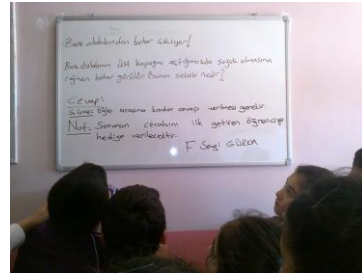 Buz dolabından buhar çıkıyor!
Buz dolabının üst kapağını açtığımızda soğuk olmasına
rağmen buhar görülür. Bunun sebebi nedir?
Cevap:
Süre: Öğle arasına kadar cevap verilmesi gerekir.
Not: Sorunun cevabını ilk getiren öğrenciye
hediye verilecektir.
F. Sevgi